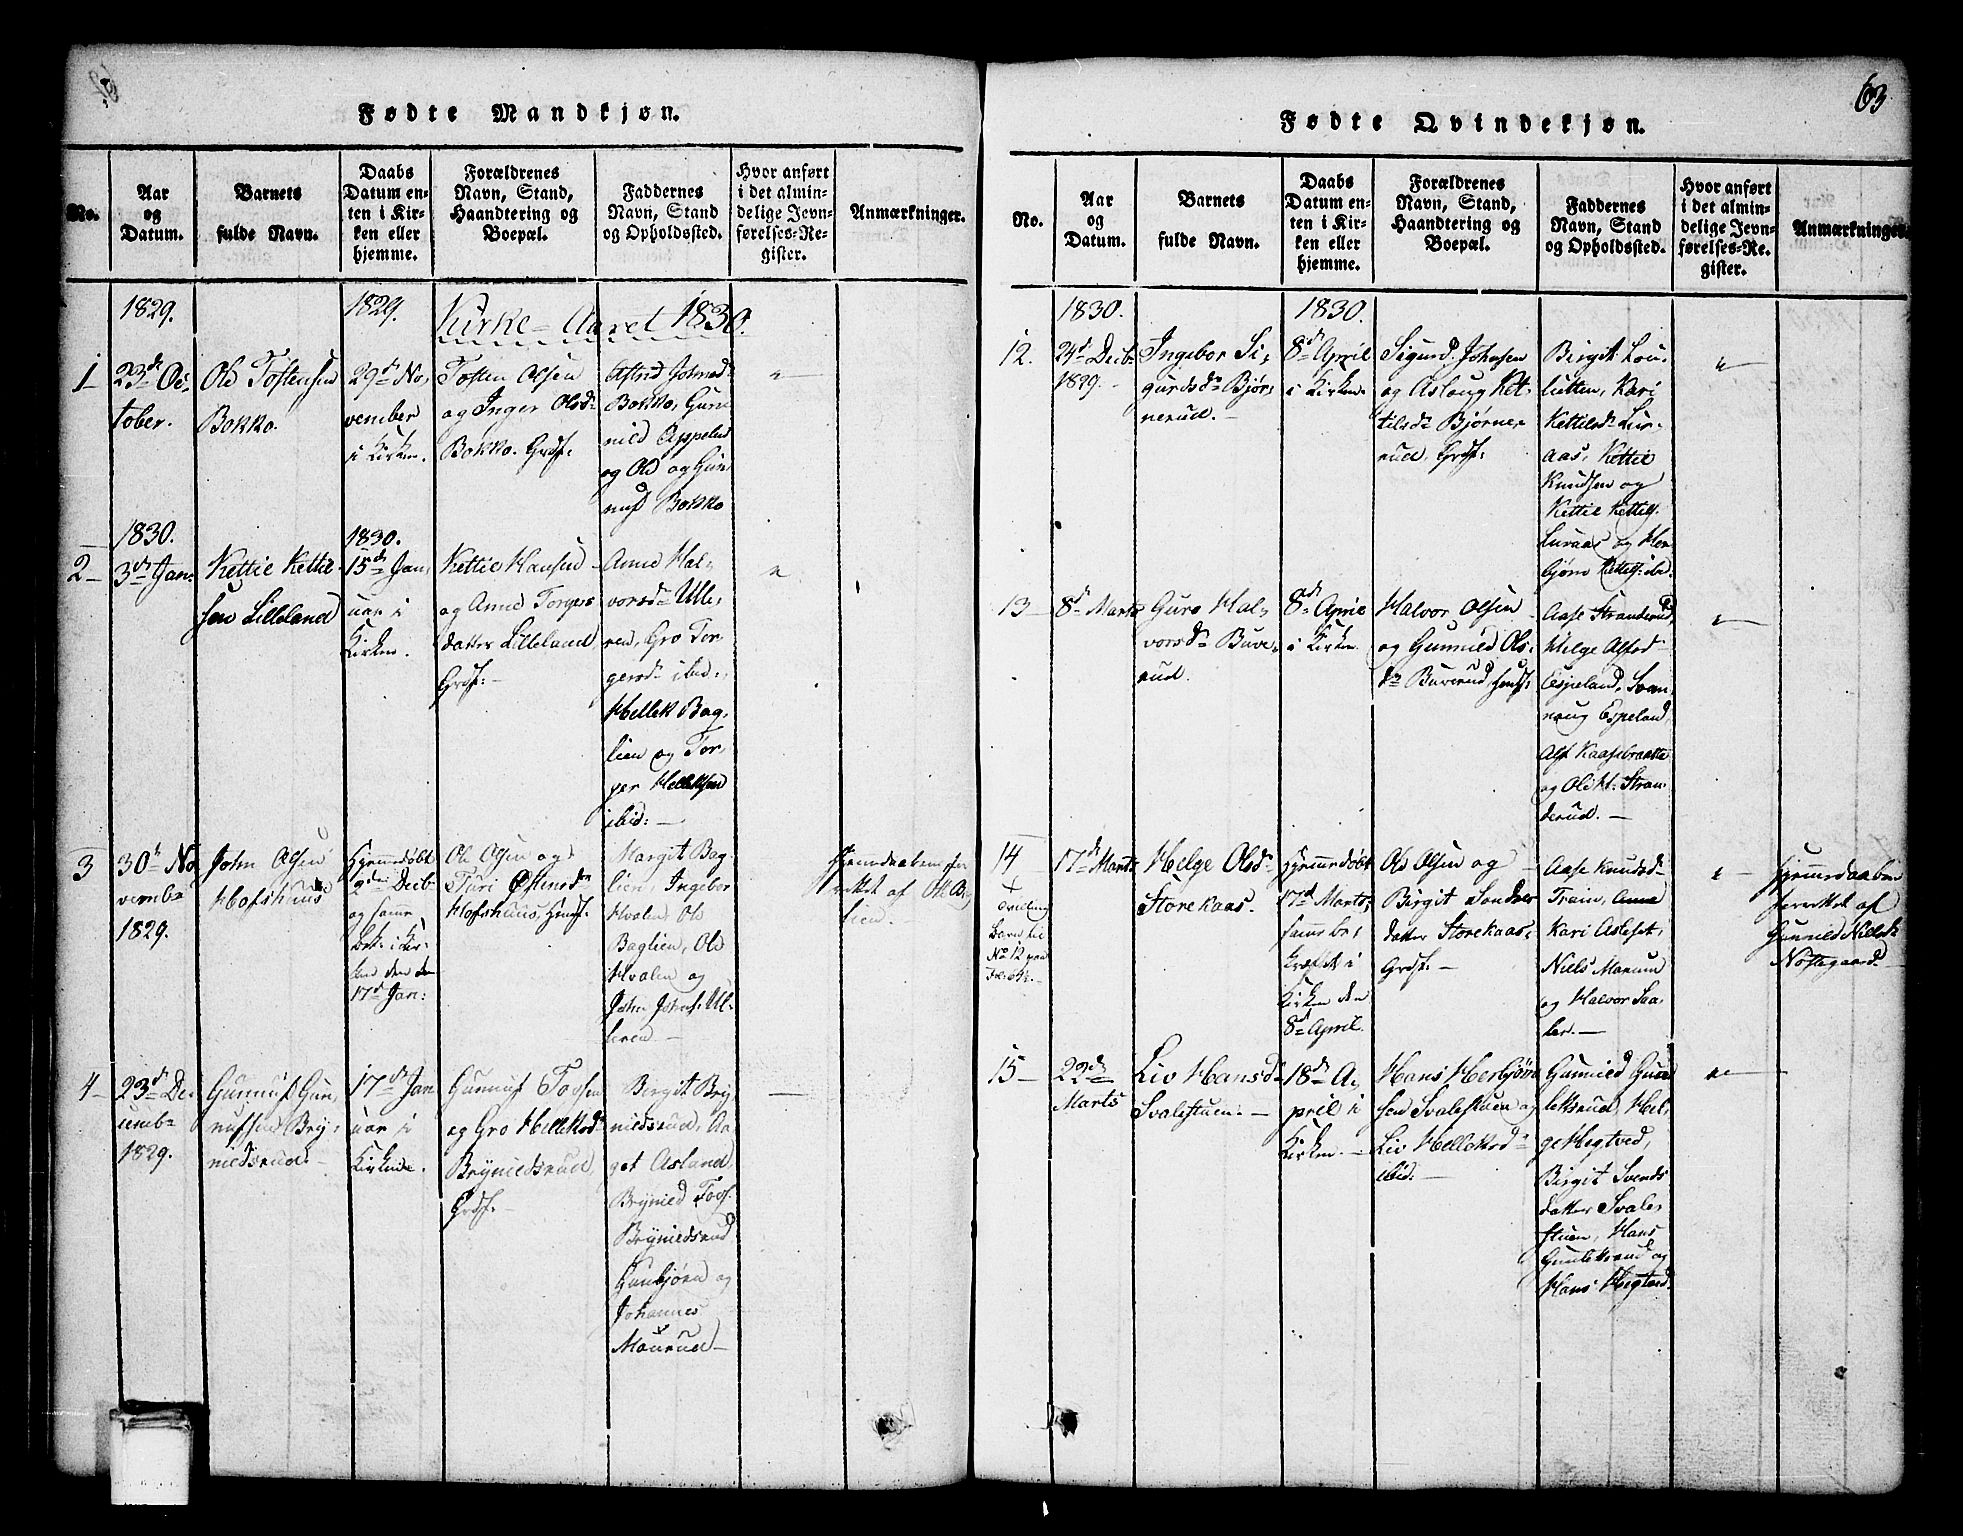 Fødte Mandkjøn.
No.
Aar
og
Datum.
Barnets
fulde Navn.
Daabs
Datum en-
ten i Kir-
ken eller
hjemme.
Forældrenes
Navn, Stand,
Haandtering og
Boepæl.
Faddernes
Navn, Stand
og Opholdssted.
Hvor anført
i det almin-
delige Jevn-
førelses-Re-
gister.
Anmærkninger.
1829.
1829.
Kirke-Aaret 1830.
1
23de Oc-
tober.
Ole Tostensen
Bokko.
29de No-
vember
i Kirken.
Tosten Olsen
og Inger Olsd.
Bokko. Grdf:
Bokko, Gun-
nild Appelud
og Ole og Gun-
nuf Bokko
1830.
1830.
2
3de Jan.
Kettil Kettil-
sen Lilleland
15de Jan-
uar i
Kirken.
Kettil Hansen
og Anne Torgers
datter Lilleland
Grdf:
Anne Hal-
vorsd. Ulle-
ren, Gro Tor-
gersd. ibid.,
Hellek Bag-
lien og Tor-
ger Helleksen
ibid:
3
30te No-
vembr
1829.
John Olsen
Hofshuus
Hjemmedøbt
2den Decbr
og
i Kir-
ken den
17de Jan:
Ole Olsen og
Turi Østensdr
Hofshuus, Huusf:
Margit Bag-
lien, Ingebor
Hvalen, Ole
Baglien, Ole
Hvalen og
John Johns. Ul-
leren
Hjemmedaaben for-
rettet af Ole Bag-
lien.
4
23de De-
cembr
1829.
Gunnuf Gun-
nufsen Bry-
nildsrud.
17de Jan-
uar i
Kirken.
Gunnuf Tovsen
og Gro Helleksdr
Brynildsrud,
Grdf:
Birgit Bry-
nildsrud, Aa-
get Asland,
Brynild Tovs.
Brynildsrud
Gunbjørn og
Johannes
Maurud
63
Fødte Qvindekjøn.
No.
Aar
og
Datum.
Barnets
fulde Navn.
Daabs
Datum en-
ten i Kir-
ken eller
hjemme.
Forældrenes
Navn, Stand,
Haandtering og
Boepæl.
Faddernes
Navn, Stand
og Opholdssted.
Hvor anført
i det almin-
delige Jevn-
førelses-Re-
gister.
Anmærkninger.
1830.
1830.
12.
24de Decbr
1829.
Ingebor Si-
gurdsdr Bjør-
nerud.
8de April
i Kirken.
Sigurd Johnsen
og Aslaug Ket-
tilsdr Bjørne-
rud, Grdf:
Birgit Lou-
lutten, Kari
Kettilsdr Lur-
aas, Kettil
Knudsen og
Kettil Kettils.
Luraas og Her-
bjørn Kettils. ibid.
13
8de Marts
Guro Hal-
vorsdr Buve-
rud.
8de April
i Kirken.
Halvor Olsen
og Gunnild Ols-
dr Buverud, Huusf:
Aase Stranderud,
Helge Alfsd.
Espeland, Svan-
noug Espeland,
Alf Kaasebrække
og Ole H. Stran-
derud.
14
Tvilling
17de Marts
Helge Olsdr
Storekaas.
Hjemmedøbt
17de Marts,
kræftet i
Kirken den
8de April.
Ole Olsen og
Birgit Sondres
datter Storekaas,
Grdf:
Aase Knudsd.
Traim, Anne
Kari Asleset,
Niels Marum
og Halvor Saa-
ler.
Hjemmedaaben
forrettet af
Gunnild Nielsdr
Nostegaard
15
22de
Marts
Liv Hansdr
Svalestuen.
18de A-
pril i
Kirken.
Hans Herbjørn-
sen Svalestuen og
Liv Helleksdr
ibid:
Gunnild Gun-
leksrud, Hel-
ge Hegtved,
Birgit Svends
datter Svale-
stuen, Hans
Gunleksrud og
Hans Hegtved.